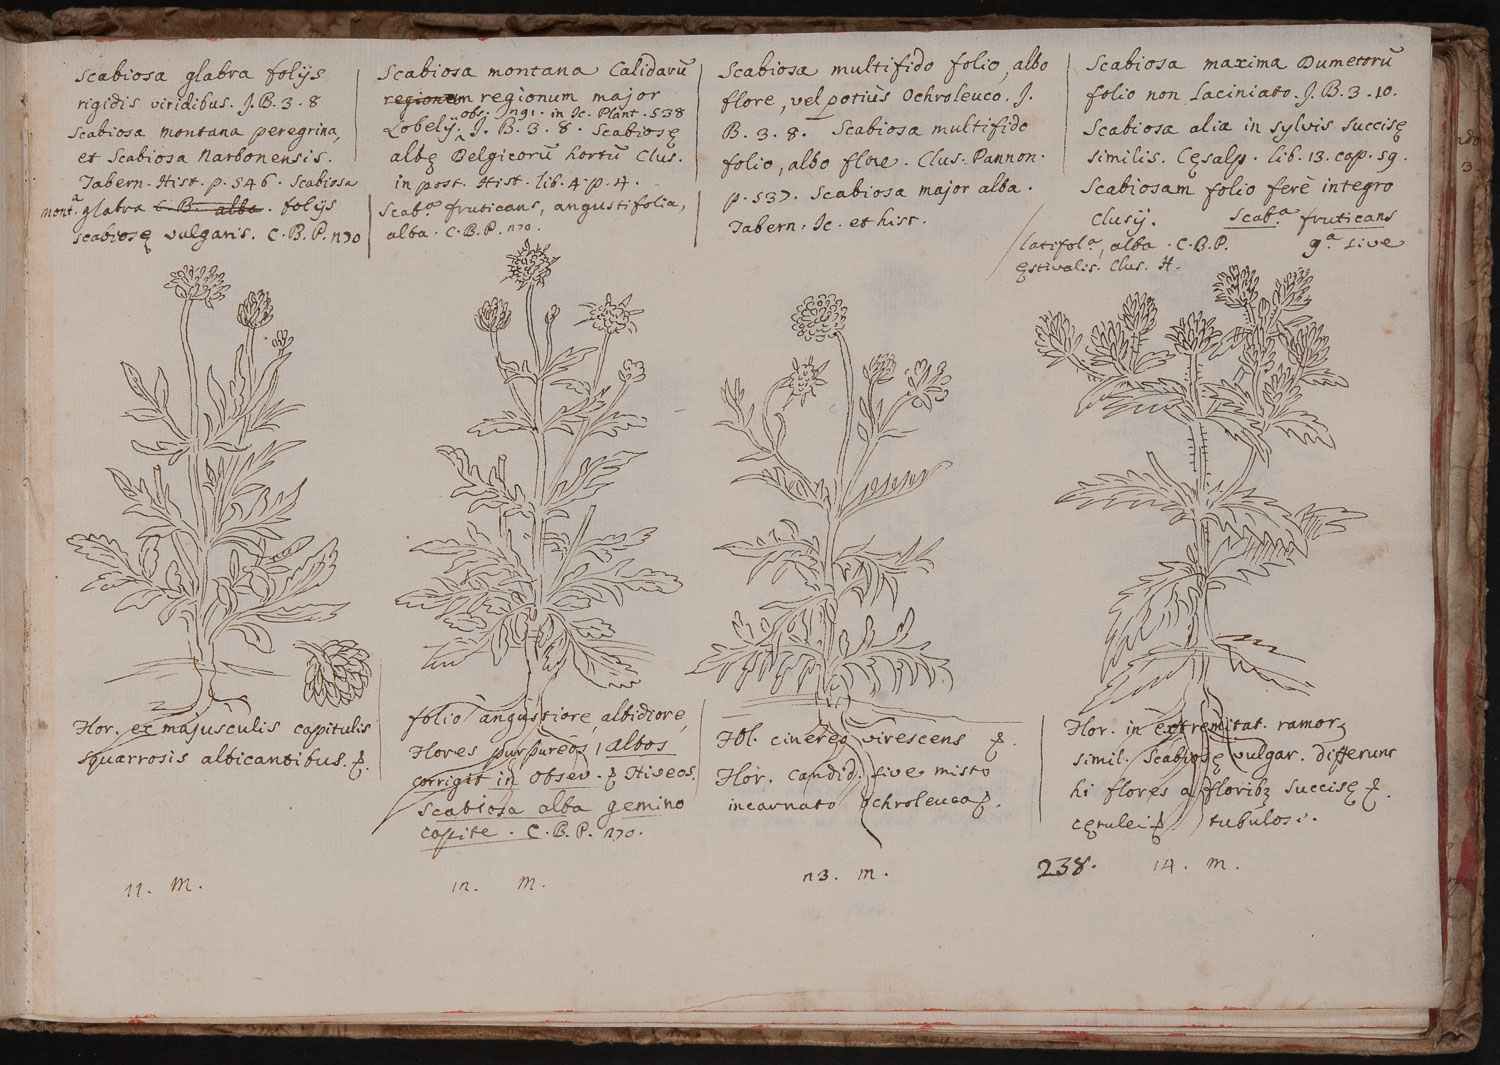 Scabiosa glabra folijs
rigidis viridibus. J.B.3.8
Scabiosa montana peregrina,
et Scabiosa Narbonensis.
Tabern. Hist. p. 546. Scabiosa
mont.ª glabra C.B. alba. folijs
Scabiosę vulgaris. C.B.P. 270
Scabiosa montana Calidarū
regionem regionum major
Lobelij. obs: 291. in Ic. Plant. 538
J.B.3.8. Scabiosę
albę Belgicorū hortū Clus.
in post. Hist. lib. 4. p. 4.
Scab.ª fruticans, angustifolia,
alba. C.B.P. 270.
Scabiosa multifido folio, albo
flore, vel potius Ochroleuco. J.
B. 3. 8. Scabiosa multifido
folio, albo flore. Clus. Pannon.
p. 537. Scabiosa major alba.
Tabern. Ic. et hist.
Scabiosa maxima Dumetorū
folio non laciniato. J.B.3.10.
Scabiosa alia in sylvis Succisę
similis. Cęsalp. lib. 13. cap. 59.
Scabiosam folio ferè integro
Clusij. Scab.ª fruticans
latifol.ª, alba. C.B.P. 9.ª sive
ęstivalis. Clus. H.
Flor. ex majusculis capitulis
squarrosis albicantibus.
folio angustiore, albidiore,
Flores purpureos, albos
corrigit in Obser. Niveos.
Scabiosa alba gemino
capite. C.B.P. 270.
Fol. cinereo virescens
Flor. candid. sive misto
incarnato ochroleuca
Flor. in extremitat. ramorʒ
simil. Scabiosę vulgar. differunt
hi flores a floribʒ Succisę
cęrulei tubulosi.
11. m.
12. m.
23. m.
238. 14. m.